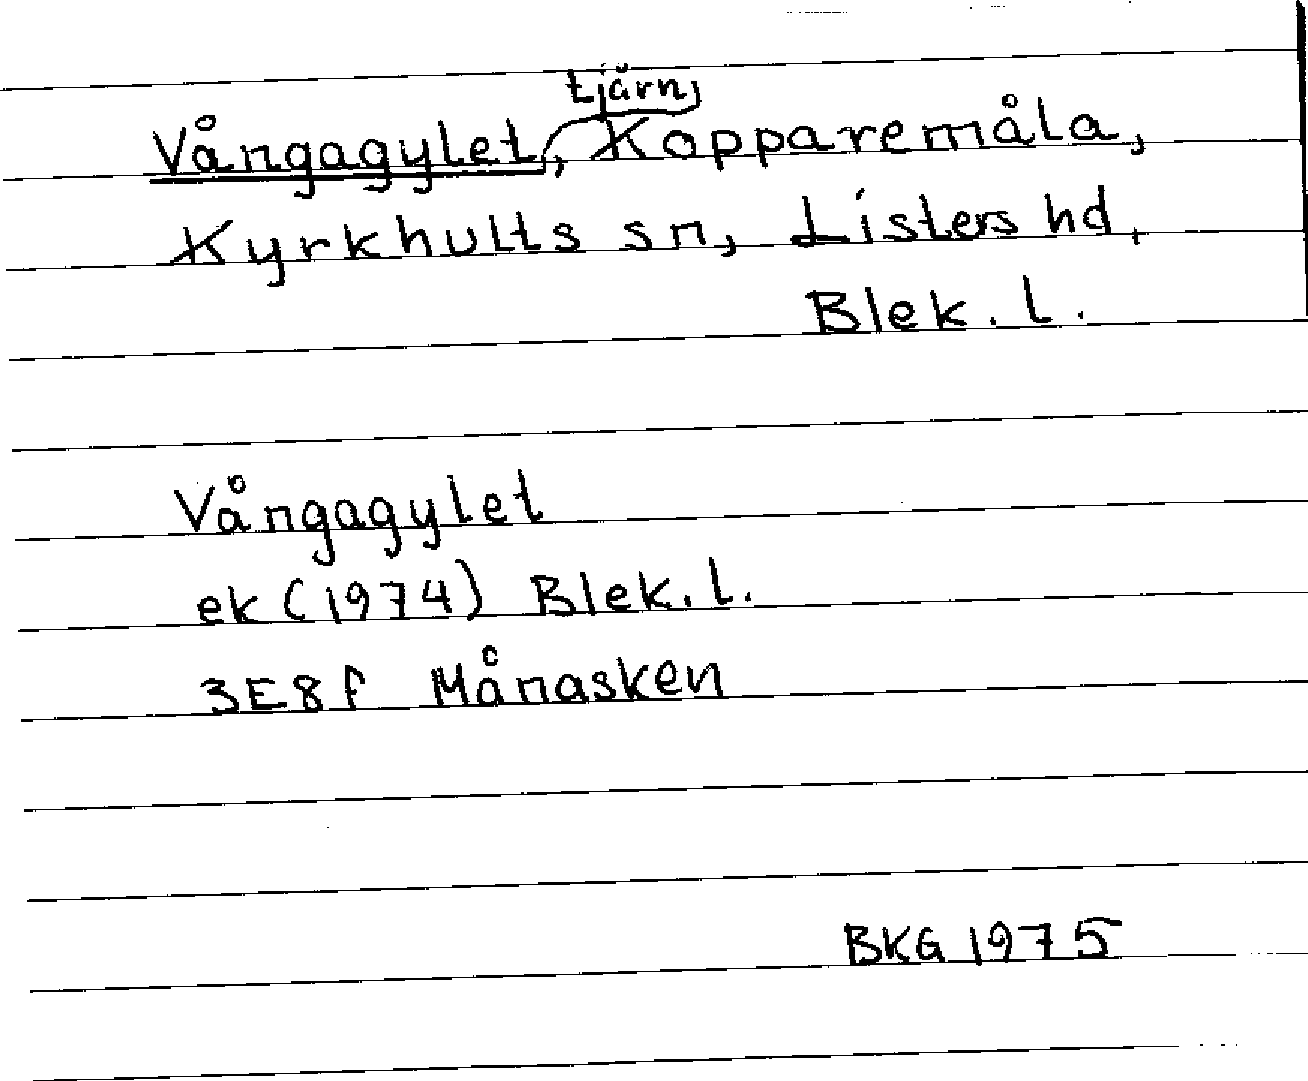 Vångagylet, tjärn, Kopparemåla,
Kyrkhults sn, Listers hd,
Blek. l.
Vångagylet
ek (1974) Blek. l.
3E8f Månasken
BKG 1975